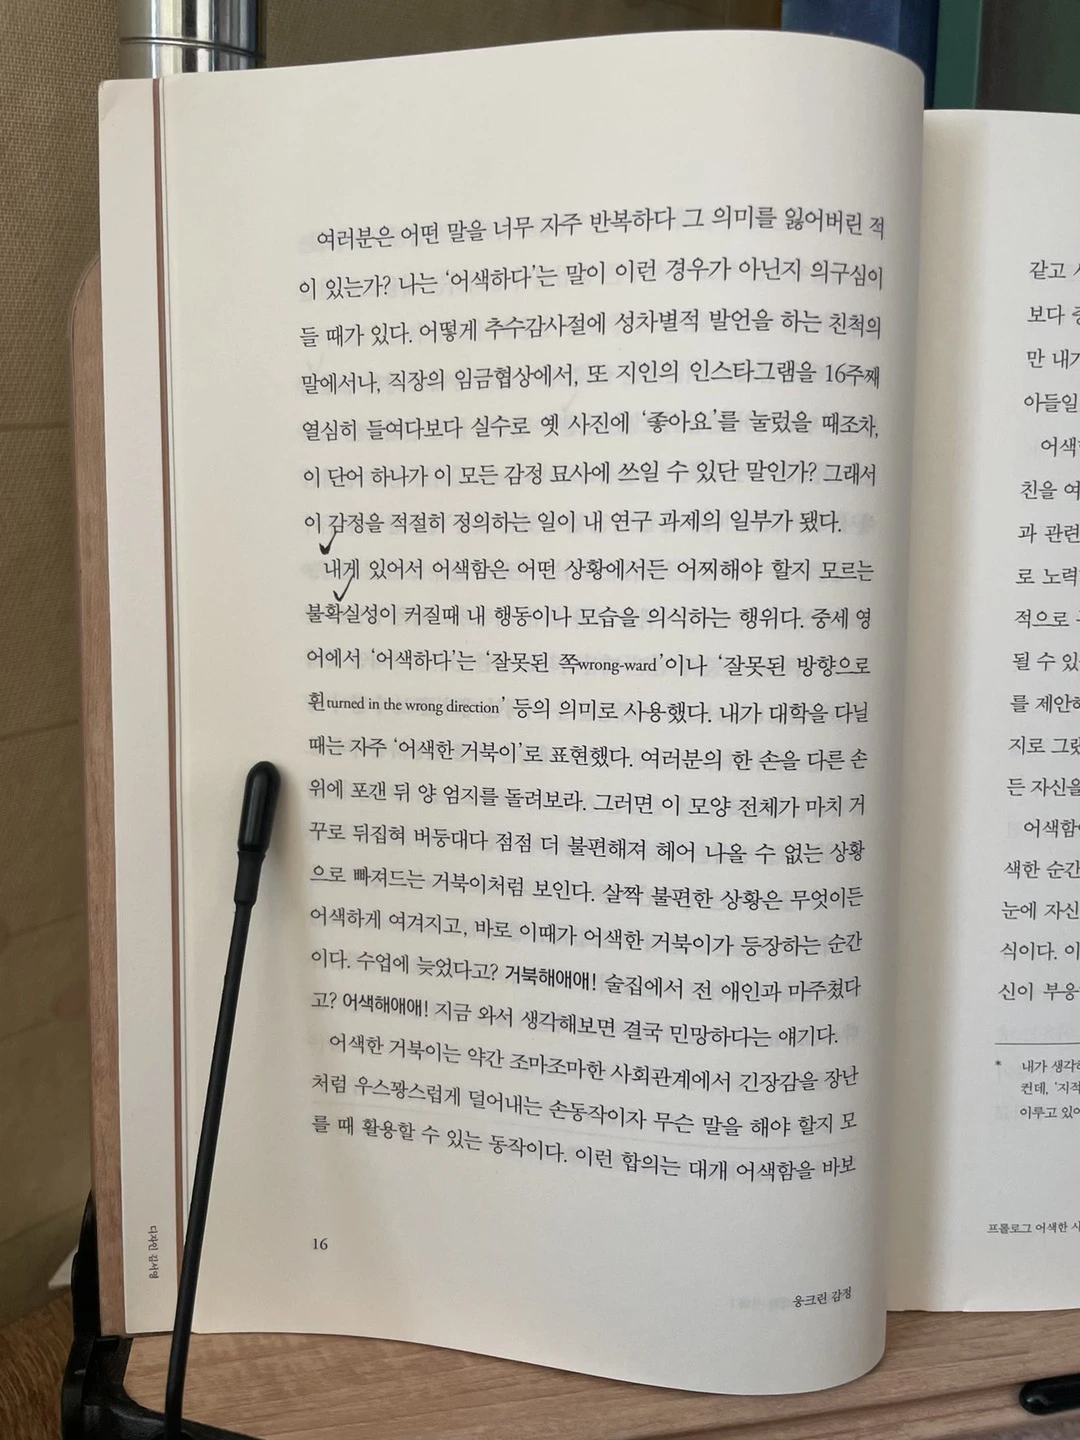 여러분은 어떤 말을 너무 자주 반복하다 그 의미를 잃어버린 적
이 있는가? 나는 ‘어색하다’는 말이 이런 경우가 아닌지 의구심이
들 때가 있다. 어떻게 추수감사절에 성차별적 발언을 하는 친척의
말에서나, 직장의 임금협상에서, 또 지인의 인스타그램을 16주째
열심히 들여다보다 실수로 옛 사진에 ‘좋아요’를 눌렀을 때조차,
이 단어 하나가 이 모든 감정 묘사에 쓰일 수 있단 말인가? 그래서
이 감정을 적절히 정의하는 일이 내 연구 과제의 일부가 됐다.
내게 있어서 어색함은 어떤 상황에서든 어찌해야 할지 모르는
불확실성이 커질때 내 행동이나 모습을 의식하는 행위다. 중세 영
어에서 ‘어색하다’는 ‘잘못된 쪽wrong-ward’이나 ‘잘못된 방향으로
휜turned in the wrong direction’ 등의 의미로 사용했다. 내가 대학을 다닐
때는 자주 ‘어색한 거북이’로 표현했다. 여러분의 한 손을 다른 손
위에 포갠 뒤 양 엄지를 돌려보라. 그러면 이 모양 전체가 마치 거
꾸로 뒤집혀 버둥대다 점점 더 불편해져 헤어 나올 수 없는 상황
으로 빠져드는 거북이처럼 보인다. 살짝 불편한 상황은 무엇이든
어색하게 여겨지고, 바로 이때가 어색한 거북이가 등장하는 순간
이다. 수업에 늦었다고? 거북해애애! 술집에서 전 애인과 마주쳤다
고? 어색해애애! 지금 와서 생각해보면 결국 민망하다는 얘기다.
어색한 거북이는 약간 조마조마한 사회관계에서 긴장감을 장난
처럼 우스꽝스럽게 덜어내는 손동작이자 무슨 말을 해야 할지 모
를 때 활용할 수 있는 동작이다. 이런 합의는 대개 어색함을 바보
16
웅크린 감정
디자인 김서영
같고
보다
만 내가
아들일
어색
친을 여
과 관련
로 노력
적으로
될 수 있
를 제안
지로 그
든 자신을
어색함
색한 순간
눈에 자신
식이다. 이
신이 부응
* 내가 생각
컨데, ‘지적
이루고 있
프롤로그 어색한